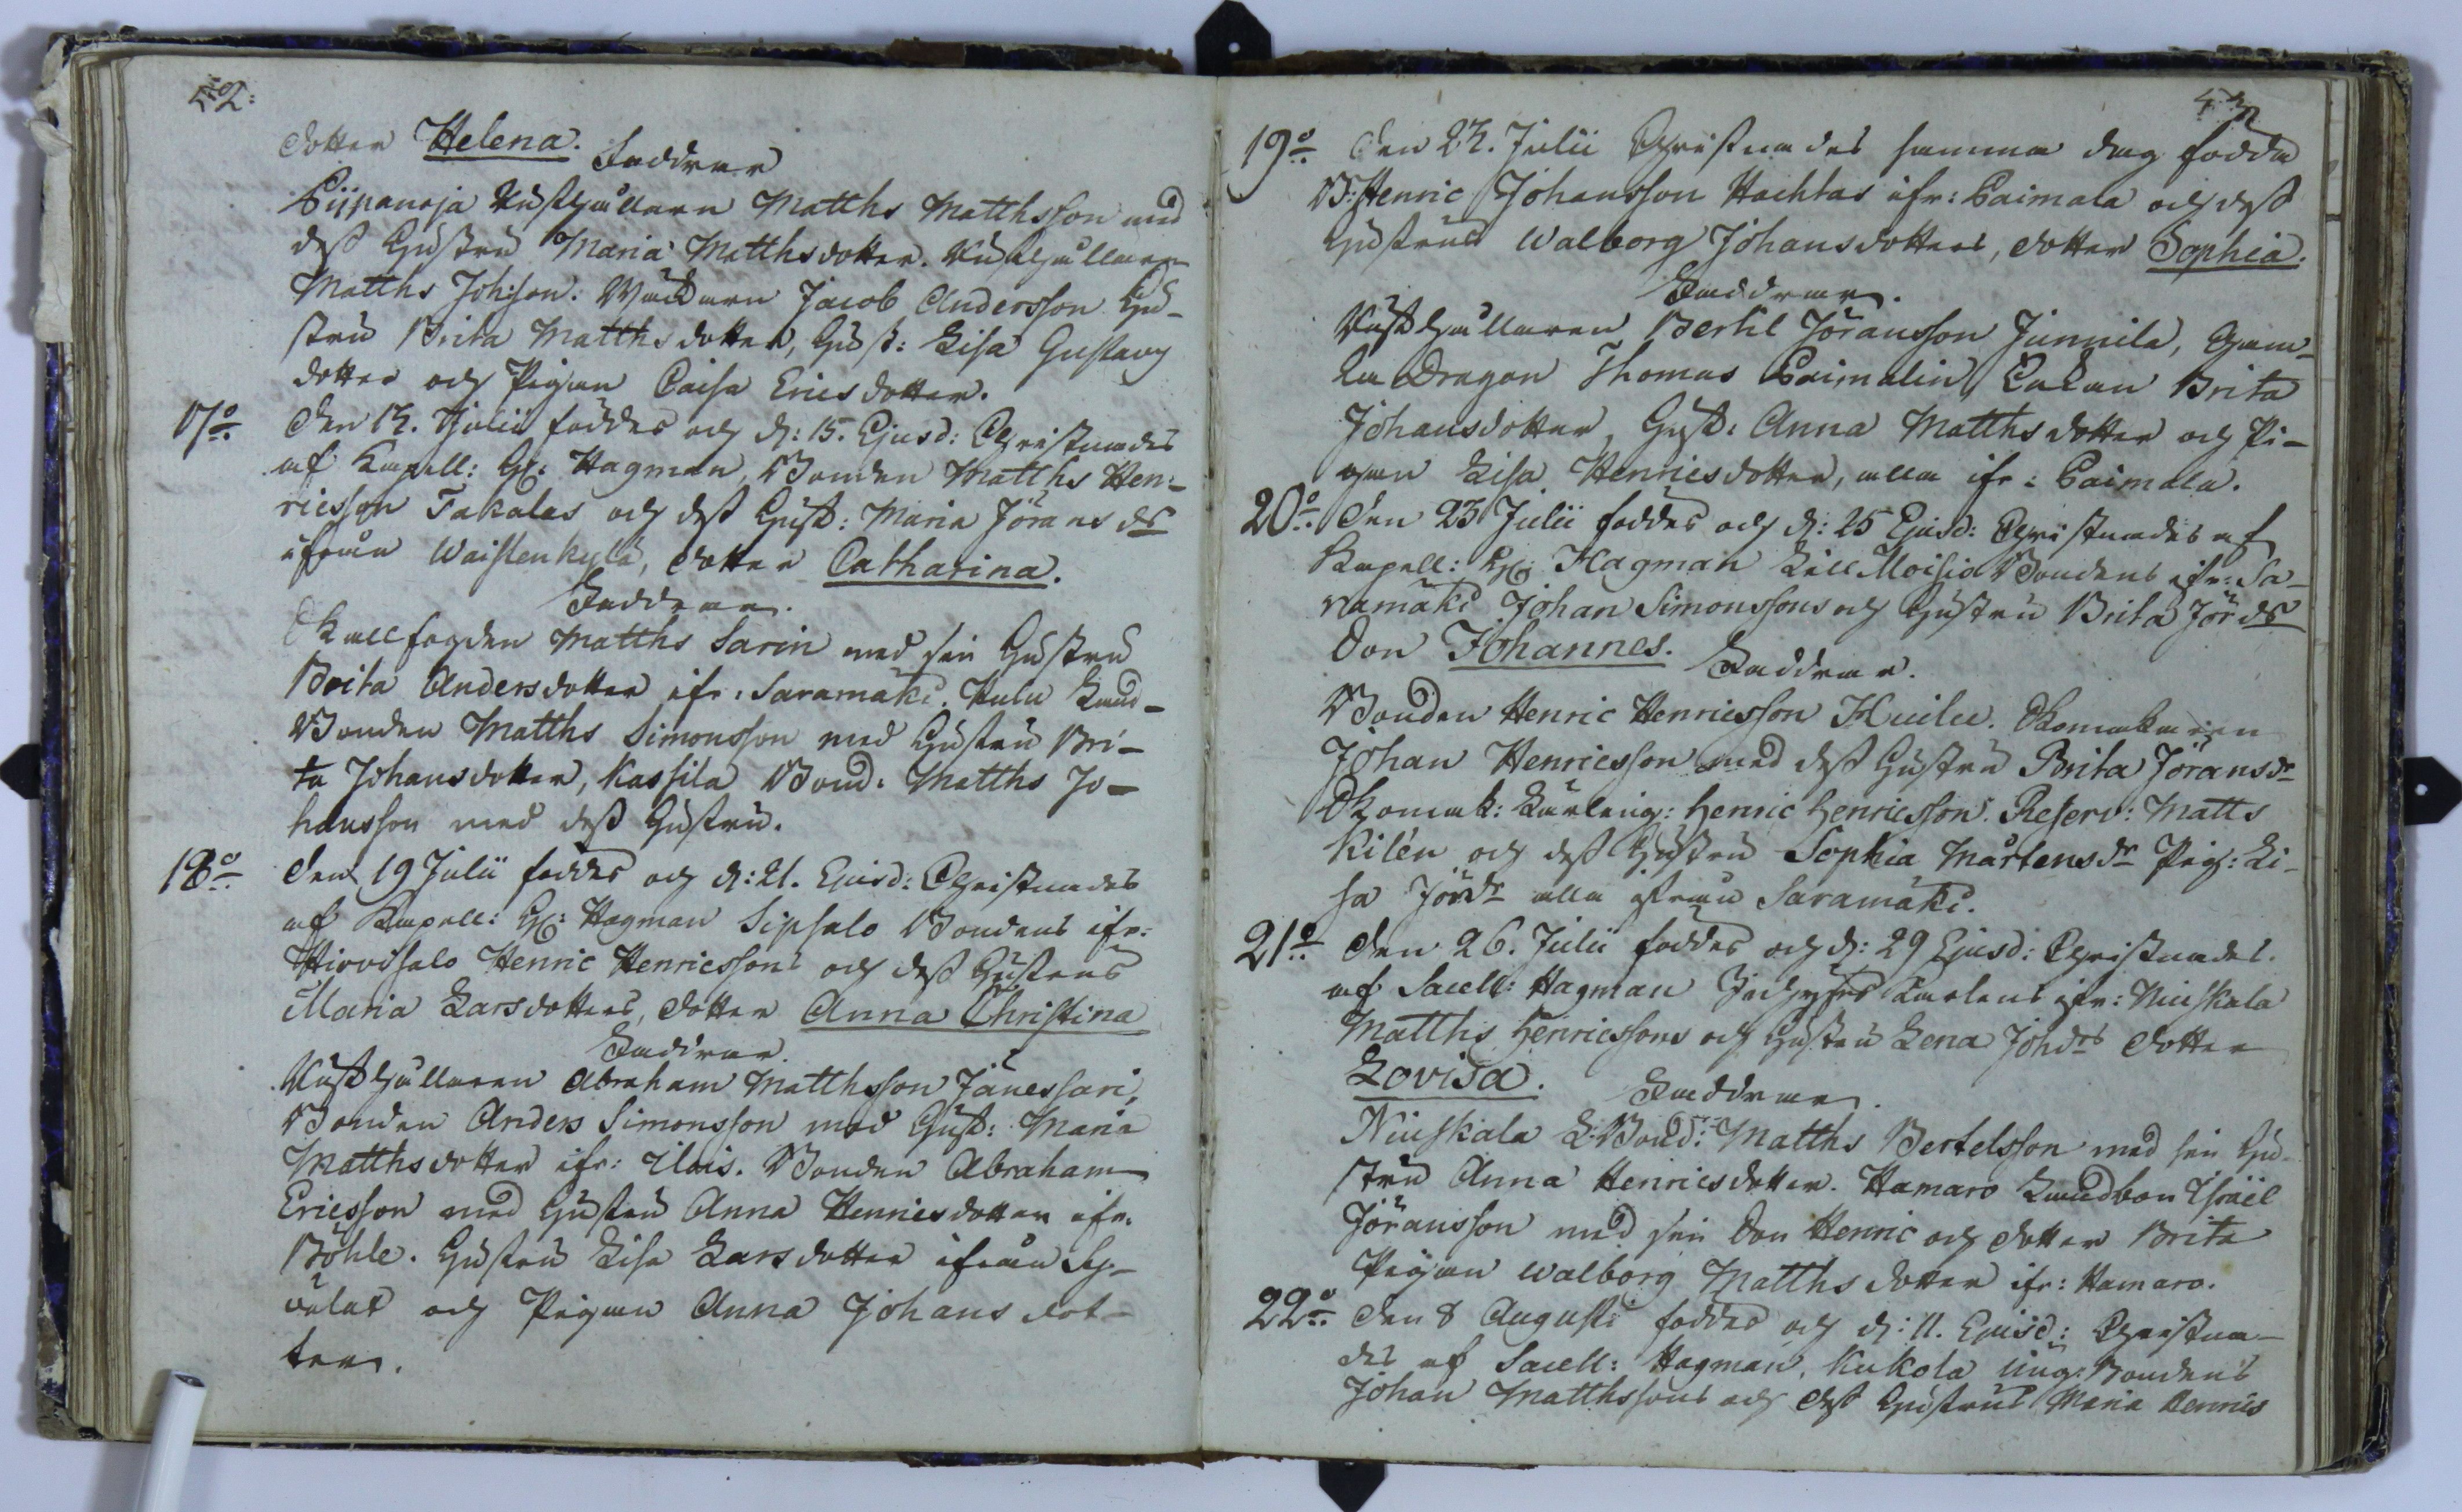 42:
dotter Helena. Faddrar
Piipanoja Rusthållarn Matths Matthsson med
dess Hustru Maria Matthsdotter. Rusthållarn
Matths Johsson. Jacob Andersson Hu-
stru Brita Matthsdotter, Hust: Lisa Gustavs
dotter och Pigan Caisa Ericsdotter.
17:o Den 13. Julii föddes och d: 15. Ejusd: Christnades
af Kapell: H: Hagman, Bonden Matths Hen-
ricsson Takalas och dess Hust: Maria Jörans dr
ifrån Waistenkylä, dotter Catharina.
Faddrar.
Skallfogden Matths Sarin med sin Hustru
Brita Andersdotter ifr: Saramäki. Land-
Bonden Matths Simonsson med Hustru Bri-
ta Johansdotter, Kassila Bond: Matths Jo-
hansson med dess Hustru.
18:o Den 19 Julii föddes och d: 21. Ejusd: Christnades
af Kapell: H: Hagman Sipsalo Bondens ifr:
Hirvisalo Henric Henricssons och dess Hustrus
Maria Larsdotters, dotter Anna Christina
Faddrar.
Rusthållaren Abraham Matthsson Jänessari,
Bonden Anders Simonsson med Hust: Maria
Matthsdotter ifr: Ilois. Bonden Abraham
Ericsson med Hustru Anna Henricsdotter ifr.
Böhle. Hustru Lisa Larsdotter ifrån
och Pigan Anna Johans dot-
ter.
43
19:o Den 23. Julii Christnades samma dag födda
B: Henric Johansson Hachtas ifr: Paimala och dess
hustrus Walborg Johansdotters, dotter Sophia.
Faddrar.
Rusthållaren Bertil Jöransson Junnila, Gam-
la Dragon Thomas Paimalin, Brita
Johansdotter, Hust: Anna Matthsdotter och Pi-
gan Lisa Henricsdotter, alla ifr: Paimala.
20:o Den 23 Julii föddes och d: 25 Ejusd: Christnades af
Kapell: H: Hagman Lill Moisio Bondens ifr: Sa-
ramäki Johan Simonssons och Hustru Brita Jör dr
Son Johannes. Faddrar.
Bonden Henric Henricsson Huilu. Skomakaren
Johan Henricsson med dess Hustru Brita Jöransdr
Skomak: Lärling: Henric Henricsson. Reserv: Matts
Kilén och dess Hustru Sophia Mårtensdr Pig: Li-
sa Jördr alla ifrån Saramäki.
21:o Den 26. Julii föddes och d: 29 Ejusd: Christnades.
af Sacell: Hagman Karlens ifr: Niuskala
Matths Henricssons och Hustru Lena Johdrs dotter
Lovisa. Faddrar.
Niuskala L:Bond: Matths Bertelsson med sin Hu-
stru Anna Henricsdotter. Hamaro Landbon Israël
Jöransson med sin Son Henric och dotter Brita
Pigan Walborg Matthsdotter ifr: Hamaro.
22:o Den 8 Augusti föddes och d: 11. Ejusd: Christna-
des af Sacell: Hagman, Kukola Ung: Bondens
Johan Matthssons och dess Hustrus Maria Henrics